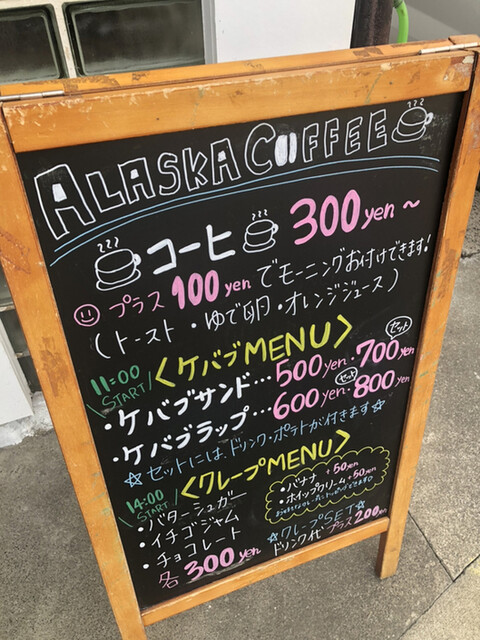 ALASKA COFFEE
コーヒ 300yen～
プラス100yenでモーニングお付けできます!
(トースト・ゆで卵・オレンジジュース)
11:00 START
〈ケバブMENU〉
・ケバブサンド…500yen・セット700yen
・ケバブラップ…600yen・セット800yen
☆セットには、ドリンク・ポテトが付きます☆
14:00 START
〈クレープMENU〉
・バターシュガー
・イチゴジャム
・チョコレート
各300yen
・バナナ +50yen
・ホイップクリーム+50yen
☆クレープSET☆
ドリンク代プラス200yen